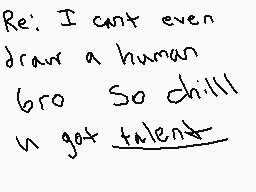 Re: I cant even
draw a human
bro so chilll
u got talent